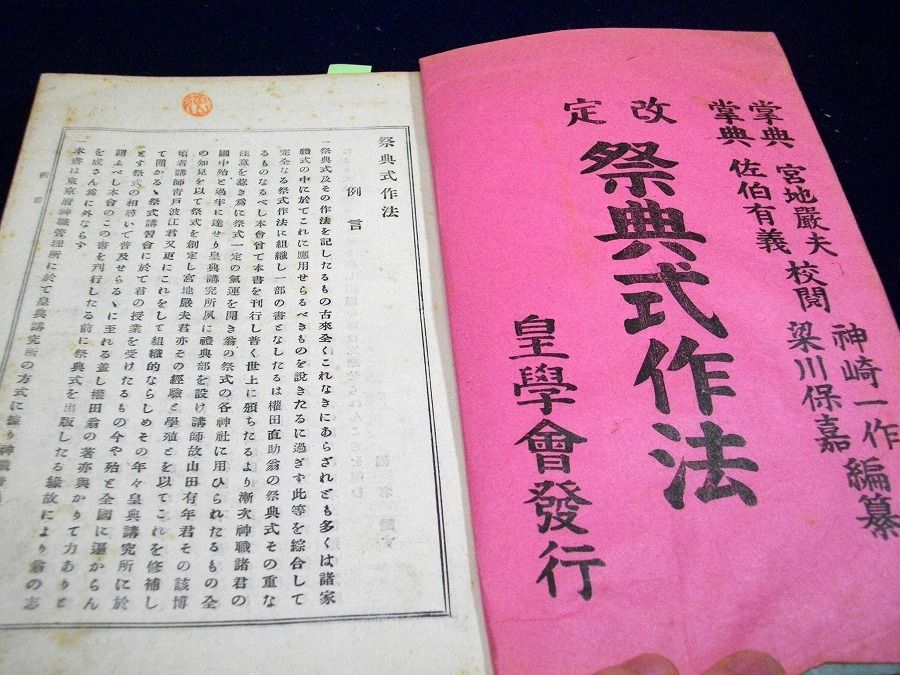 掌典 宮地嚴夫
掌典 佐伯有義 校閲
神崎一作
梁川保嘉 編纂
改定
祭典式作法
皇學會發行
祭典式作法
例言
一祭典式及その作法を記したるもの古來全くこれなきにあらざれども多くは諸家
の禮式の中に於てこれに應用せらるべきものを說きたるに過ぎず此等を綜合して
完全なる祭式作法に組織し一部の書となしたるは權田直助翁の祭典式その重な
るものなるべし本會曾て本書を刊行し普く世上に頒ちたるより漸次神職諸君の
注意を惹き爲に祭式一定の氣運を開き翁の祭式の各神社に用ひられたるもの全
國中殆と過半に達せり皇典講究所夙に禮典部を設け講師故山田有年君その該博
の知見を以て祭式を創定し宮地嚴夫君亦その經驗と學殖とを以てこれを修補し
頃者講師靑戸波江君又更にこれをして組織的ならしめその年々皇典講究所に於
て開かるゝ祭式講習會に於て君の授業を受けたるもの今や殆と全國に遍からん
とす祭式の相尋いて普及せらるゝに至れる蓋し權田翁の著亦與かりて力ありと
謂ふべし本會のこの書を刊行したる前に祭典式を出版したる緣故により翁の志
を成さん爲に外ならす
本書は東京府神職管理所に於て皇典講究所の方式に據り神職
例言